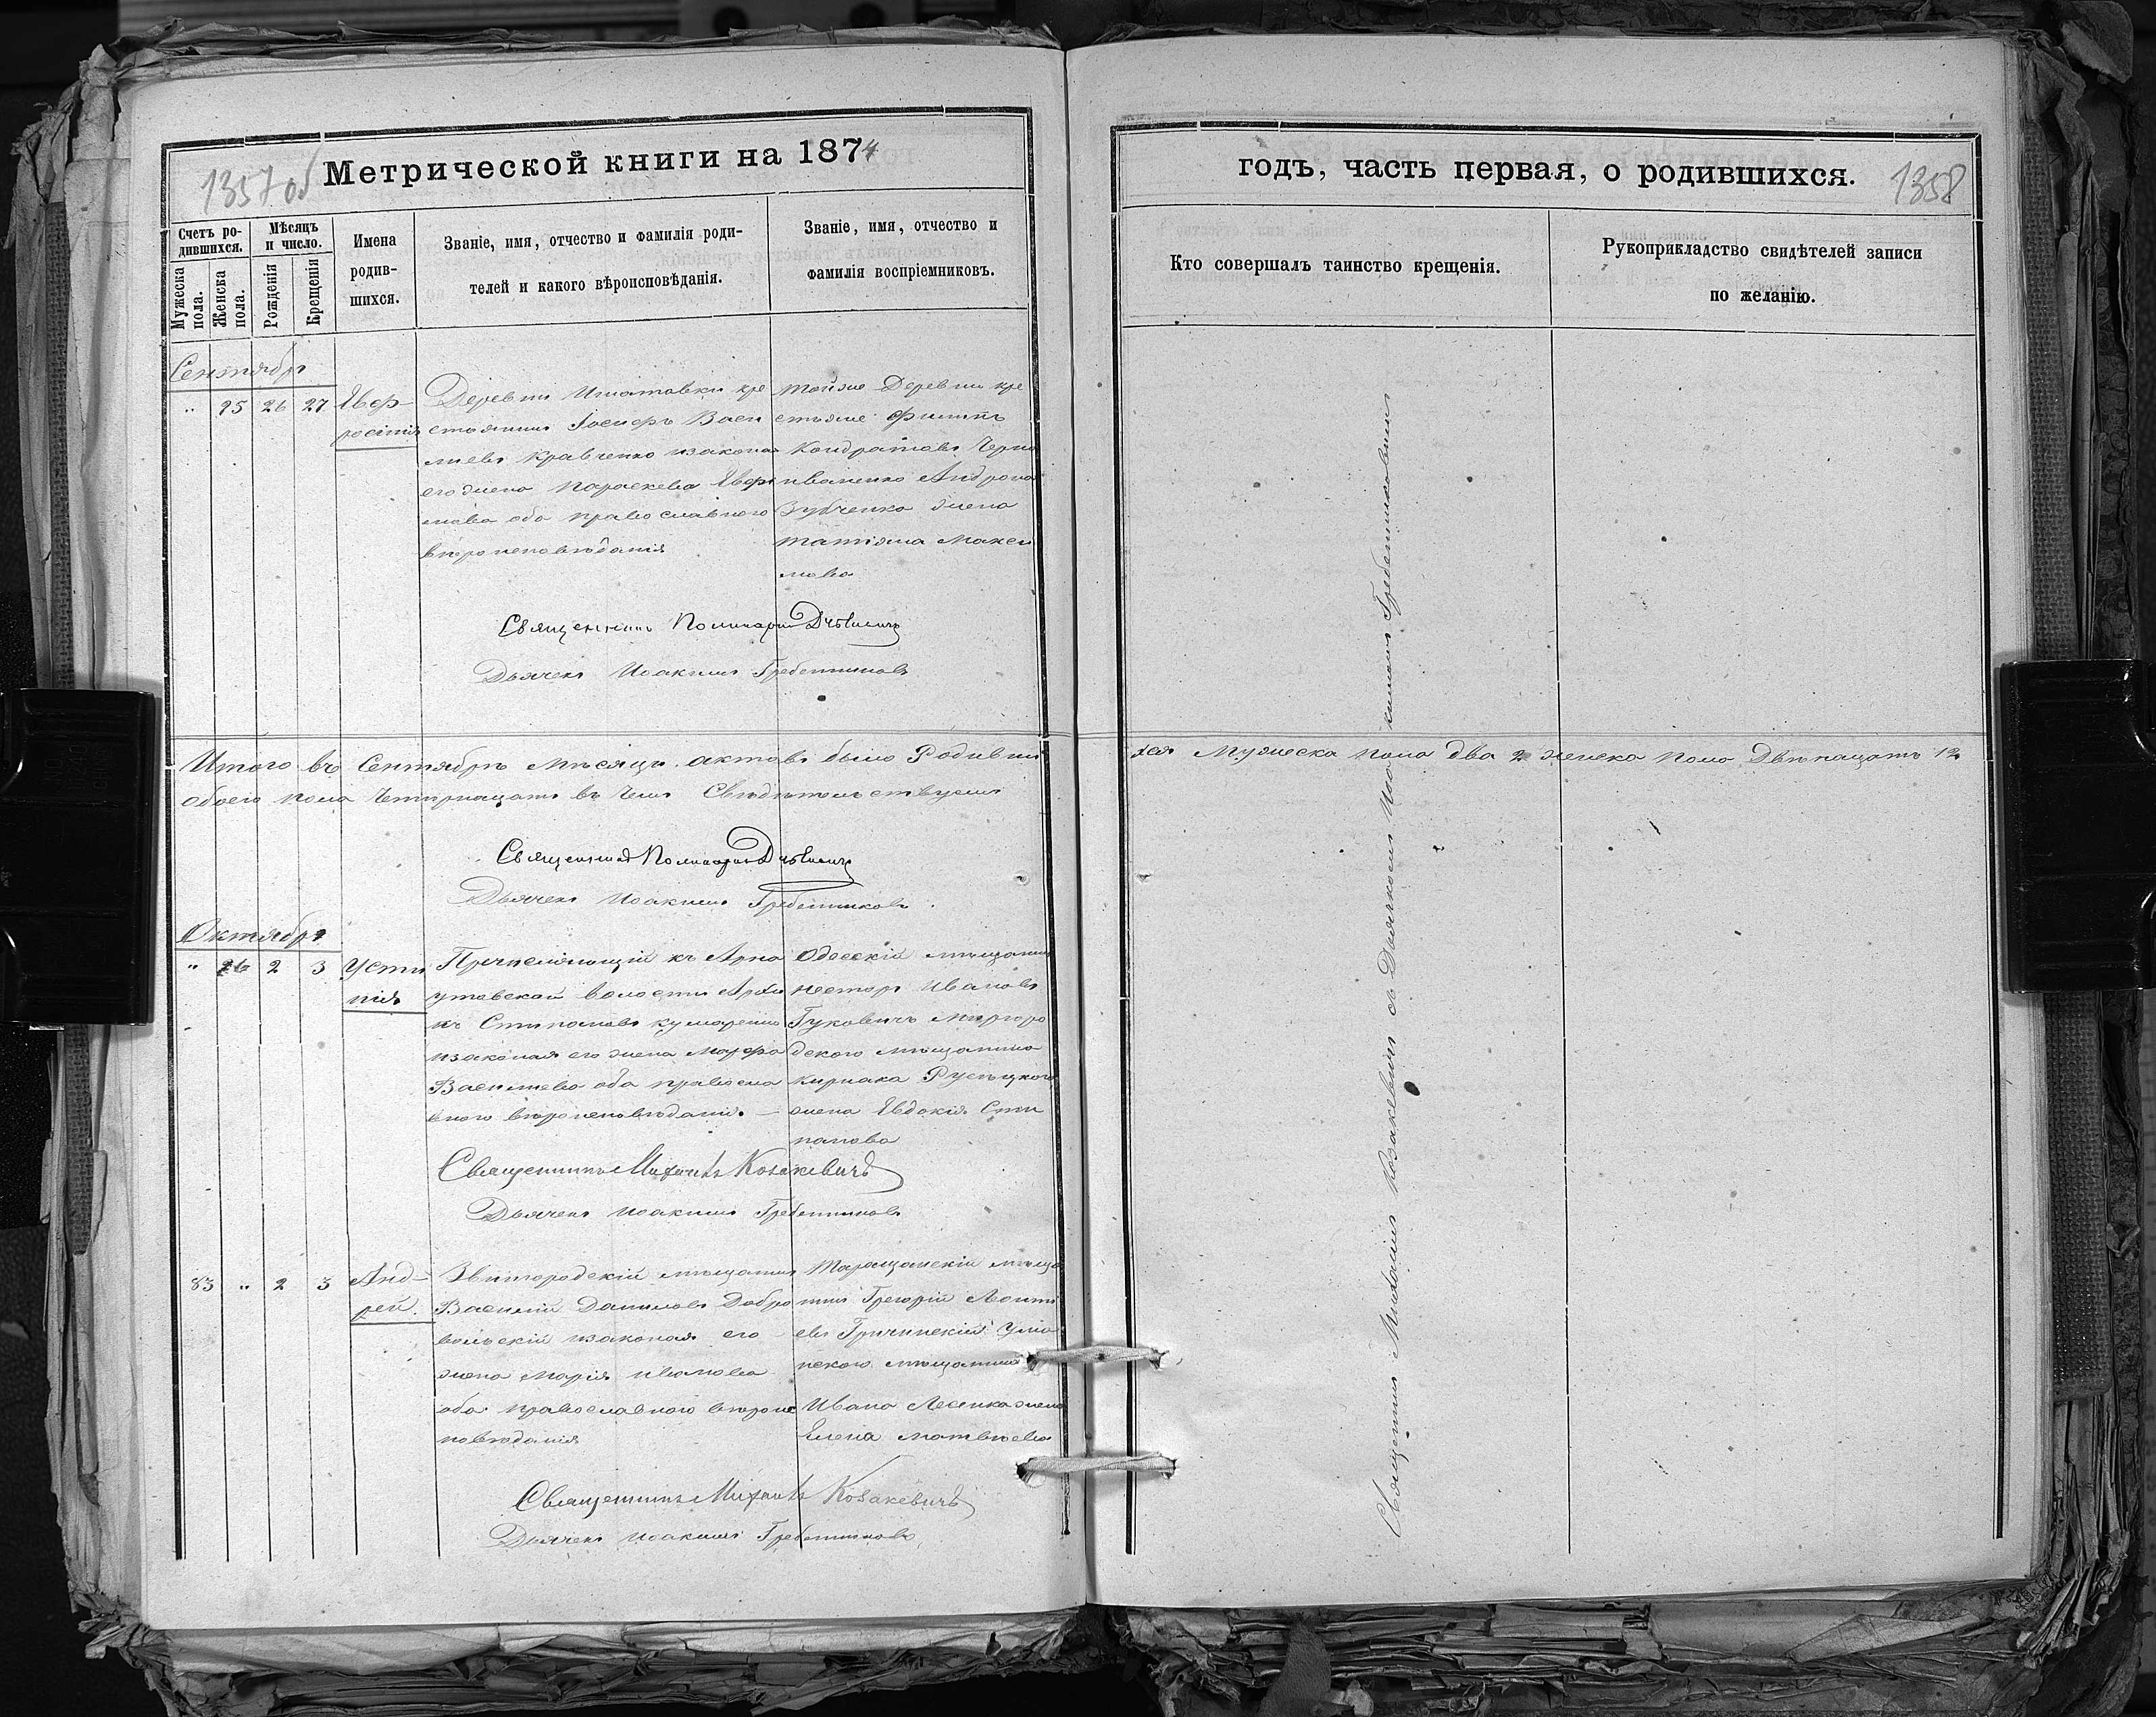 1357 об
Метрической книги на 1874
Счетъ ро-
дившихся.
Мужеска
пола.
Женска
пола.
Мѣсяцъ
и число.
Рожденія
Крещенія
Имена
родив-
шихся.
Званіе, имя, отчество и фамилія роди-
телей и какого вѣроисповѣданія.
Званіе, имя, отчество и
фамилія воспріемниковъ.
Сентябрь
" 25 26 27
Деревни Игнатовки кре
стьянинъ Іосифъ Васи
ліевъ Кравченко изаконая
его жена Параскева
обо православного
вѣроисповѣданія
тойже Деревни кре
стьяне Филиппъ
Кондратовъ
Андрона
Зубченка жена
татіяна Макси
мова
Священникъ Поликарпъ
Дьячекъ Иоакимъ Гребенниковъ
Итого въ Сентябрѣ мѣсяцѣ актовъ было Родивши
обоего пола Четырнацать въ чемъ Свидѣтельствуемъ
Священникъ Поликарпъ
Дьячекъ Иоакимъ Гребенниковъ
Октябрь
" 26 2 3 Усти
нія
къ
волости
къ
изаконая его жена Марфа
Василіева обо правосла
вного вѣроисповѣданія. —
Одесскій мѣщанинъ
Несторъ Ивановъ
дского мѣщанина
Киріака
жена Евдокія Сти
панова
Священникъ Михаилъ Козакевичъ
Дьячекъ Иоакимъ Гребенниковъ
83 " 2 3 Анд-
рей.
Звинородскій мѣщанинъ
Василій Даниловъ Добро
вольскій изаконая его
жена Марія Иванова
обо православного вѣроис
повѣданія
Таращанскій мѣща
нинъ Грегорій Леонті
евъ Ума
нского мѣщанина
Ивана жена
Елена Матвѣева
Священникъ Михаилъ Козакевичъ
Дьячекъ Иоакимъ Гребенниковъ
годъ, часть первая, о родившихся.
1358
Кто совершалъ таинство крещенія.
Рукоприкладство свидѣтелей записи
по желанію.
хся Мужеска пола два 2 женска пола Двѣнацать 12
Священникъ Михаилъ Козакевичъ съ Дьячкомъ Иоакимомъ Гребенниковымъ